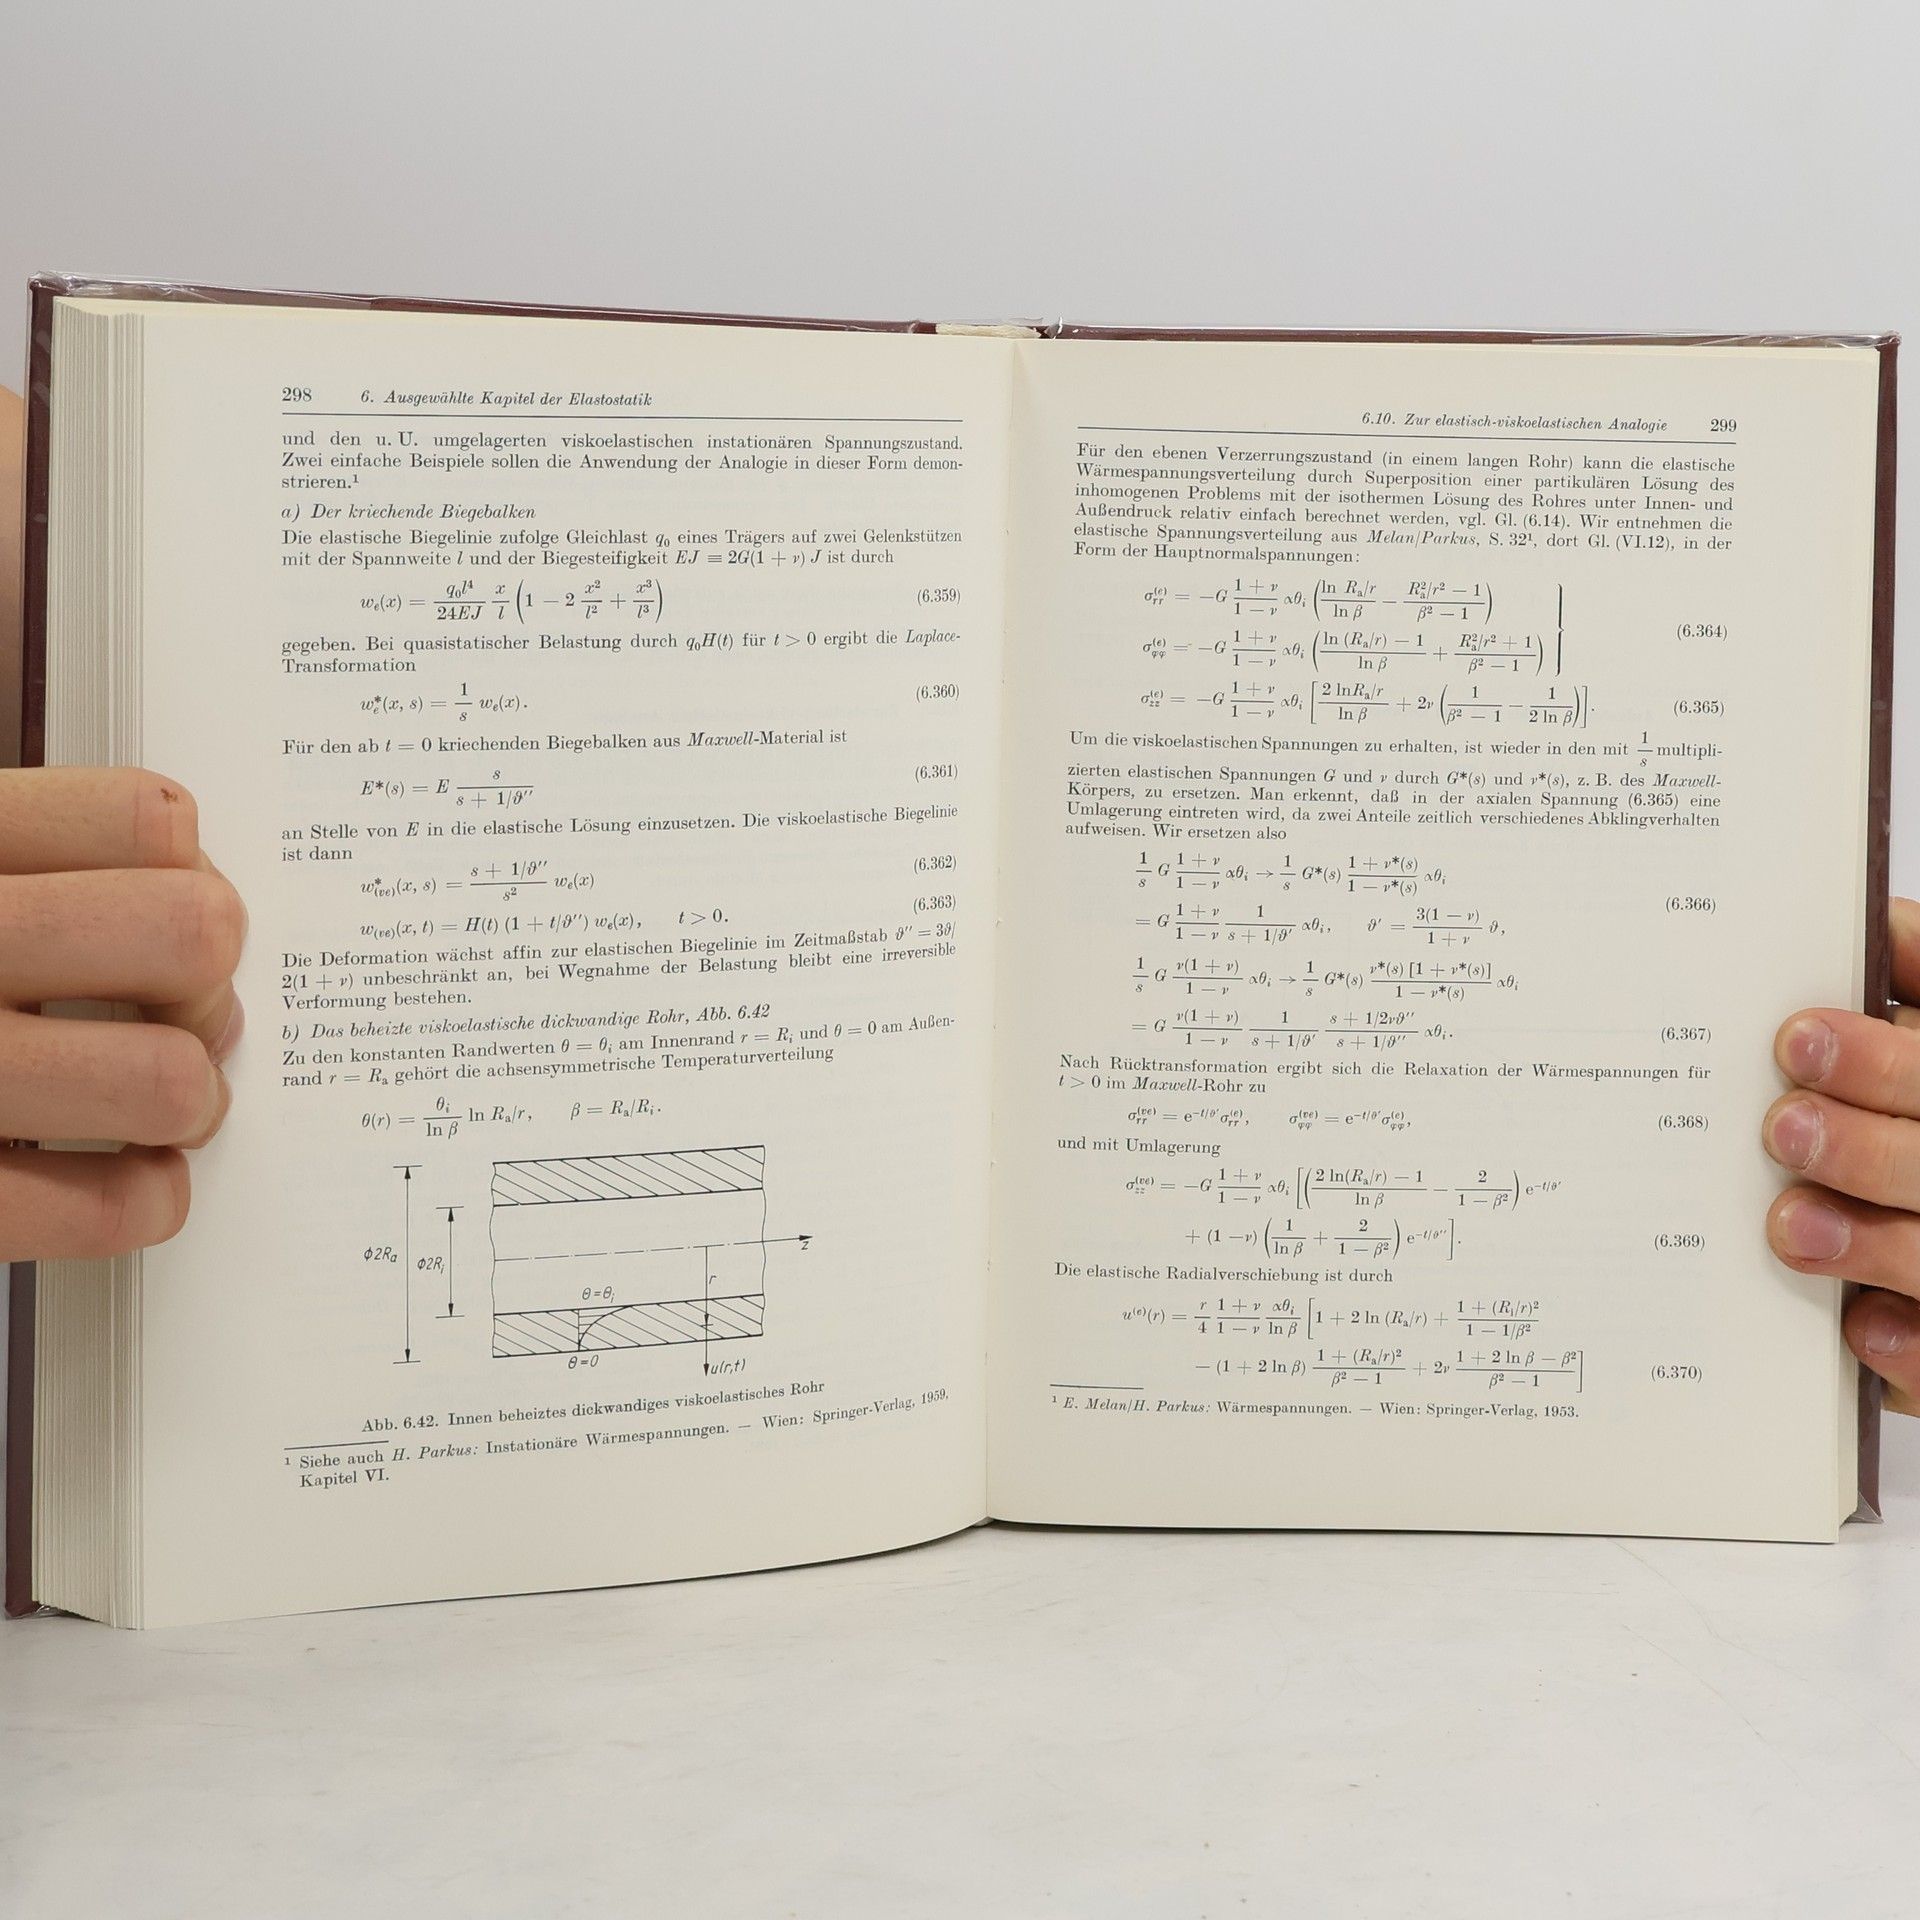 298 6. Ausgewählte Kapitel der Elastostatik
und den u. U. umgelagerten viskoelastischen instationären Spannungszustand.
Zwei einfache Beispiele sollen die Anwendung der Analogie in dieser Form demon-
strieren.¹
a) Der kriechende Biegebalken
Die elastische Biegelinie zufolge Gleichlast q₀ eines Trägers auf zwei Gelenkstützen
mit der Spannweite l und der Biegesteifigkeit EJ ≡ 2G(1 + ν) J ist durch
wₑ(x) = q₀l⁴/24EJ x/l (1 − 2 x²/l² + x³/l³) (6.359)
gegeben. Bei quasistatischer Belastung durch q₀H(t) für t > 0 ergibt die Laplace-
Transformation
wₑ*(x, s) = 1/s wₑ(x). (6.360)
Für den ab t = 0 kriechenden Biegebalken aus Maxwell-Material ist
E*(s) = E s/(s + 1/ϑ′′) (6.361)
an Stelle von E in die elastische Lösung einzusetzen. Die viskoelastische Biegelinie
ist dann
w*(ve)(x, s) = (s + 1/ϑ′′)/s² wₑ(x) (6.362)
w(ve)(x, t) = H(t) (1 + t/ϑ′′) wₑ(x), t > 0. (6.363)
Die Deformation wächst affin zur elastischen Biegelinie im Zeitmaßstab ϑ′′ = 3ϑ/
2(1 + ν) unbeschränkt an, bei Wegnahme der Belastung bleibt eine irreversible
Verformung bestehen.
b) Das beheizte viskoelastische dickwandige Rohr, Abb. 6.42
Zu den konstanten Randwerten θ = θᵢ am Innenrand r = Rᵢ und θ = 0 am Außen-
rand r = Rₐ gehört die achsensymmetrische Temperaturverteilung
θ(r) = θᵢ/ln β ln Rₐ/r, β = Rₐ/Rᵢ.
ϕ2Rₐ
ϕ2Rᵢ
z
r
θ=θᵢ
θ=0
u(r,t)
Abb. 6.42. Innen beheiztes dickwandiges viskoelastisches Rohr
¹ Siehe auch H. Parkus: Instationäre Wärmespannungen. — Wien: Springer-Verlag, 1959,
Kapitel VI.
6.10. Zur elastisch-viskoelastischen Analogie 299
Für den ebenen Verzerrungszustand (in einem langen Rohr) kann die elastische
Wärmespannungsverteilung durch Superposition einer partikulären Lösung des
inhomogenen Problems mit der isothermen Lösung des Rohres unter Innen- und
Außendruck relativ einfach berechnet werden, vgl. Gl. (6.14). Wir entnehmen die
elastische Spannungsverteilung aus Melan/Parkus, S. 32¹, dort Gl. (VI.12), in der
Form der Hauptnormalspannungen:
σᵣᵣ⁽ᵉ⁾ = −G (1 + ν)/(1 − ν) αθᵢ (ln Rₐ/r / ln β − (Rₐ²/r² − 1)/(β² − 1))
σ_φφ⁽ᵉ⁾ = −G (1 + ν)/(1 − ν) αθᵢ ((ln (Rₐ/r) − 1)/ln β + (Rₐ²/r² + 1)/(β² − 1)) (6.364)
σ_zz⁽ᵉ⁾ = −G (1 + ν)/(1 − ν) αθᵢ [2 lnRₐ/r / ln β + 2ν (1/(β² − 1) − 1/(2 ln β))]. (6.365)
Um die viskoelastischen Spannungen zu erhalten, ist wieder in den mit 1/s multipli-
zierten elastischen Spannungen G und ν durch G*(s) und ν*(s), z. B. des Maxwell-
Körpers, zu ersetzen. Man erkennt, daß in der axialen Spannung (6.365) eine
Umlagerung eintreten wird, da zwei Anteile zeitlich verschiedenes Abklingverhalten
aufweisen. Wir ersetzen also
1/s G (1 + ν)/(1 − ν) αθᵢ → 1/s G*(s) (1 + ν*(s))/(1 − ν*(s)) αθᵢ
= G (1 + ν)/(1 − ν) 1/(s + 1/ϑ′) αθᵢ, ϑ′ = 3(1 − ν)/(1 + ν) ϑ, (6.366)
1/s G ν(1 + ν)/(1 − ν) αθᵢ → 1/s G*(s) ν*(s) [1 + ν*(s)]/(1 − ν*(s)) αθᵢ
= G ν(1 + ν)/(1 − ν) 1/(s + 1/ϑ′) (s + 1/2νϑ′′)/(s + 1/ϑ′′) αθᵢ. (6.367)
Nach Rücktransformation ergibt sich die Relaxation der Wärmespannungen für
t > 0 im Maxwell-Rohr zu
σᵣᵣ⁽ᵛᵉ⁾ = e^(−t/ϑ′) σᵣᵣ⁽ᵉ⁾, σ_φφ⁽ᵛᵉ⁾ = e^(−t/ϑ′) σ_φφ⁽ᵉ⁾, (6.368)
und mit Umlagerung
σ_zz⁽ᵛᵉ⁾ = −G (1 + ν)/(1 − ν) αθᵢ [((2 ln(Rₐ/r) − 1)/ln β − 2/(1 − β²)) e^(−t/ϑ′)
+ (1 − ν) (1/ln β + 2/(1 − β²)) e^(−t/ϑ′′)]. (6.369)
Die elastische Radialverschiebung ist durch
u⁽ᵉ⁾(r) = r/4 (1 + ν)/(1 − ν) αθᵢ/ln β [1 + 2 ln (Rₐ/r) + (1 + (Rᵢ/r)²)/(1 − 1/β²)
− (1 + 2 ln β) (1 + (Rₐ/r)²)/(β² − 1) + 2ν (1 + 2 ln β − β²)/(β² − 1)] (6.370)
¹ E. Melan/H. Parkus: Wärmespannungen. — Wien: Springer-Verlag, 1953.